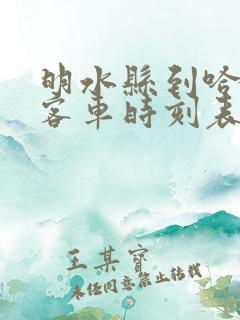 明水縣到哈
客車時刻表
王某寶
未經同意禁止轉載